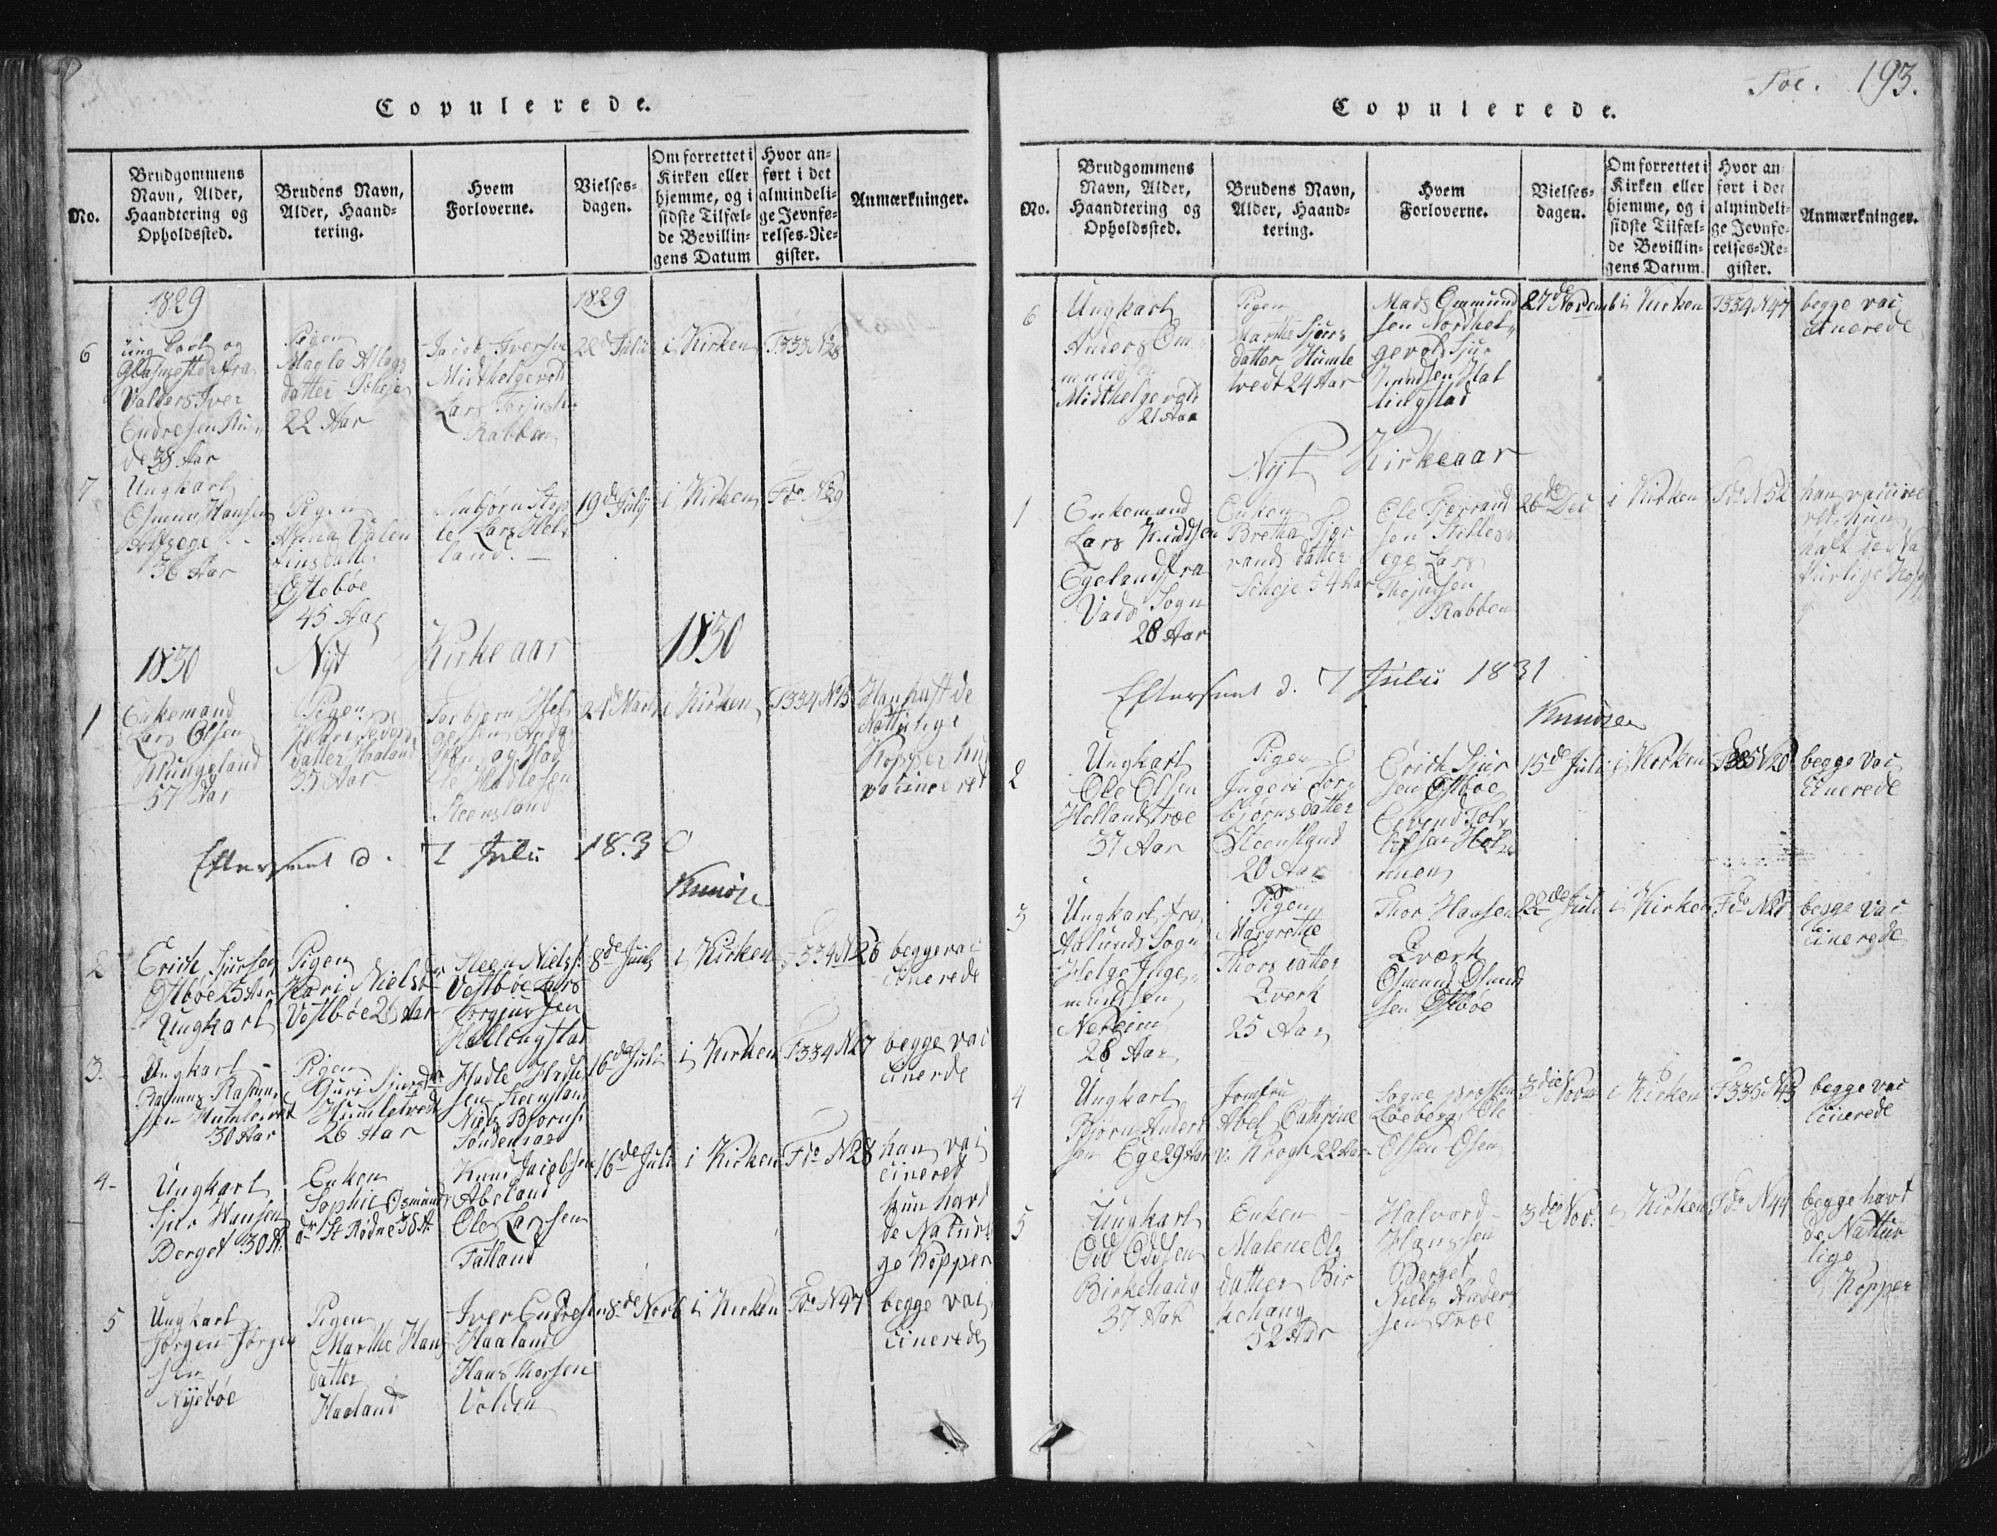 Copulerede.
No.
Brudgommens
Navn, Alder,
Haandtering og
Opholdssted.
Brudens Navn,
Alder, Haand-
tering.
Hvem
Forloverne.
Vielses-
dagen.
Om forrettet i
Kirken eller
hjemme, og i
sidste Tilfæl-
de Bevillin-
gens Datum
Hvor an-
ført i det
almindeli-
ge Jevnfø-
relses-Re-
gister.
Anmærkninger.
1829
1829
6
Ung Karl og
fra
Valders Iver
Endresen
de 38 Aar
Pigen
Aslags
datter Scheje
22 Aar
Jacob Iversen
Midthelgevold
Lars
Rabben
22d Juli
i Kirken
F333 N28
7
Ungkarl
Osmun Hansen
36 Aar
Pigen
Anna Valen
tinsdatter
Østebøe
45 Aar
Lars Hol
land.
19de July
i Kirken
Fdo N29
1830
Nyt Kirkeaar
1830
1
Enkemand
Lars Olsen
Klungeland
57 Aar
Pigen
Kari Peders
datter Haaland
35 Aar
Torbjørn Hel
gesen
og Had
le Hadlesen
Steensland
24d Marts
i Kirken
F334 N15
Han haft de
Natturlige
Kopper hun
vaccineret
Efterseet d. 7 Julii 1830
Knudsen
2
Erich Sjursen
Østbøe 25 Aar
Ungkarl
Pigen
Kari Nielsdr
Vestbøe 26 Aar
Steen Niels
Vestbøe Lars
Torgiersen
Hallingstad
8de Juli
i Kirken
F334 N26
begge vac
cinerede
3.
Ungkarl
Rasmus Rasmus
sen Humletvedt
30 Aar
Pigen
Guri Sjursdr
Humletvedt
26 Aar
Hadle Hadle
sen Steensland
Niels Bjørns
Søndenaae
16de Juli
i Kirken
F334 N27
begge vac
cinerde
4
Ungkarl
Sjur Hansen
Berget 30 A.
Enken
Sophie Osmunds
dr St Rødne 38 A
Knud Jacobsen
Abeland
Ole Larssen
Fatland
16de Juli
i Kirken
Fdo N28
han vac
cineret
hun havt
de Naturli
ge Kopper
5
Ungkarl
Jørgen Jørgen
sen
Nyebøe
Pigen
Marthe Hans
datter
Haaland
Iver Endresen
Haaland
Hans Thorsen
Volden
8de Novb
i Kirken
Fdo N47
begge vac
cinerede
Foe. 193.
Copulerede.
No.
Brudgommens
Navn, Alder,
Haandtering og
Opholdssted.
Brudens Navn,
Alder, Haand-
tering.
Hvem
Forloverne.
Vielses-
dagen.
Om forrettet i
Kirken eller
hjemme, og i
sidste Tilfæl-
de Bevillin-
gens Datum.
Hvor an-
ført i det
almindeli-
ge Jevnfø-
relses-Re-
gister.
Anmærkninger.
6
Ungkarl
Anders Om
mundsen
Midthelgevold
21 Aar
Pigen
Marthe Sjurs
datter Humle
tvedt 24 Aar
Mads Ommund
sen Nordhel
gevold Sjur
Knudsen Hal
lingstad
27de Novemb
i Kirken
F334 N47
begge vac
cinerede
Nyt Kirkeaar
1
Enkemand
Lars Knudsen
Egeland fra
Vads Sogn
28 Aar
Enken
Bretha Tjer
rands datter
Scheje 54 Aar
Ole Tjerrand
sen Killes
ege Lars
Thojersen
Rabben
26de Dec
i Kirken
Fdo N52
han vaccine
ret, hun
haft de Na
turlige Kop
Efterseet d. 7 Julii 1831
Knudsen
2
Ungkarl
Ole Olsen
Hellandstræe
37 Aar
Pigen
Ingeri Tor
bjørns datter
Steensland
20 Aar
Erich Sjur
sen Østbøe
Eivend Tol
lefsen Hol
men
15de Juli
i Kirken
F335 N20
begge vac
cinerede
3
Ungkarl fra
Aalunds Sogn
Helge Inge
mundsen
Neheim
28 Aar
Pigen
Margrethe
Thors datter
Qverk
25 Aar
Thor Hansen
Qværk
Osmund Osmund
sen Østbøe
22de Juli
i Kirken
Fdo N21
begge vac
cinerede
4
Ungkarl
Bjørn Anders
sen Ege 29 Aar
Jomfru
Abel Cathrine
v. Krogh 22 Aar
Sogne Præsten
Løeberg, Ole
Olsen Ølsen
3die Novbr
i Kirken
F335 N43
begge vac
cinerede
5
Ungkarl
Odd Oddsen
Birkehaug
37 Aar
Enken
Malene Ols
datter Bir
kehaug
52 Aar
Halvord
Hanssen
Berget
Niels Ander
sen Træe
3die Nov.
i Kirken
Fdo N44
begge havt
de Nattur
lige
Kopper